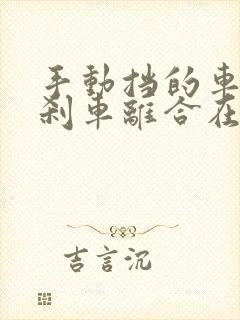 手動挡的車
刹車離合在
吉言沉